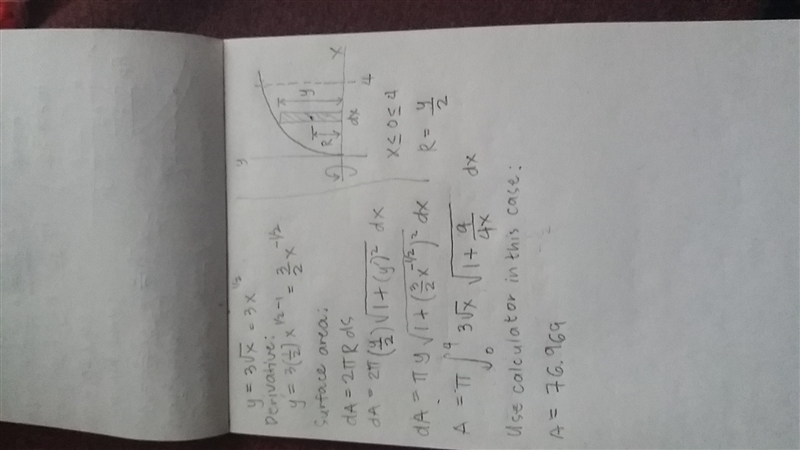 y = 3√x = 3x^1/2
Derivative:
y' = 3(1/2)x^1/2-1 = 3/2 x^-1/2
Surface area:
dA = 2πR ds
dA = 2π(y/2)√1+(y')² dx
dA = πy√1+(3/2 x^-1/2)² dx
A = π∫₀⁴ 3√x √1+9/4x dx
Use calculator in this case:
A = 76.969
y
x
R
y
dx
4
x≤0≤4
R = y/2